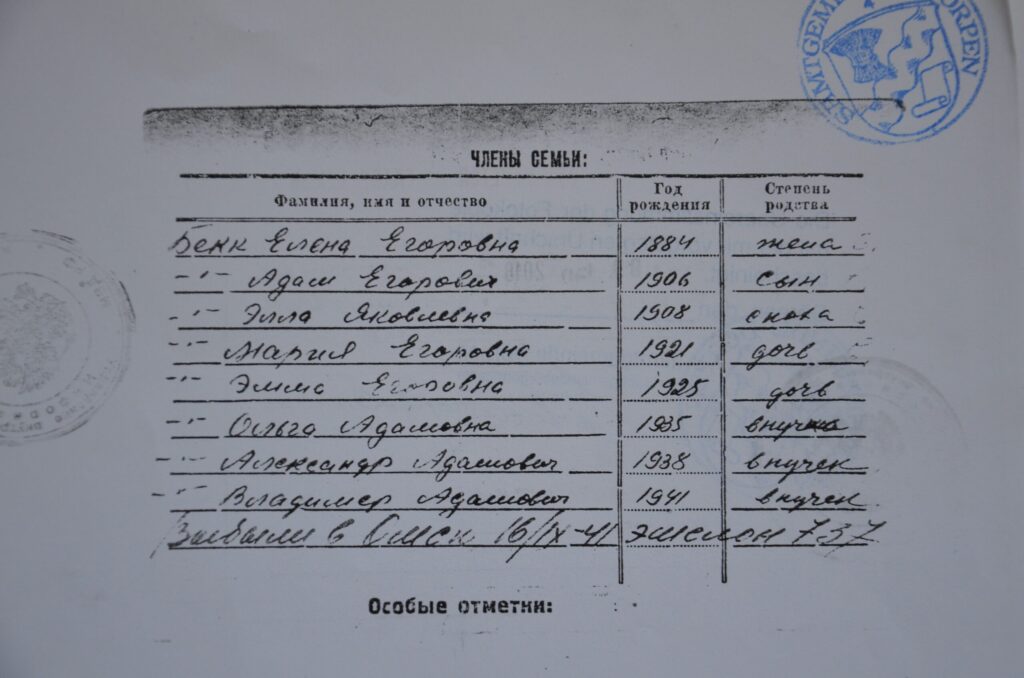 SAMTGEMEINDE DÖRPEN
ЧЛЕНЫ СЕМЬИ:
Фамилия, имя и отчество Год рождения Степень родства
Бекк Елена Егоровна 1884 жена
-"- Адам Егорович 1906 сын
-"- Элла Яковлевна 1908 сноха
-"- Мария Егоровна 1921 дочь
-"- Эмма Егоровна 1925 дочь
-"- Ольга Адамовна 1935 внучка
-"- Александр Адамович 1938 внучек
-"- Владимер Адамович 1941 внучек
Выбыли в Омск 16/IX-41 эшелон 737
Особые отметки: